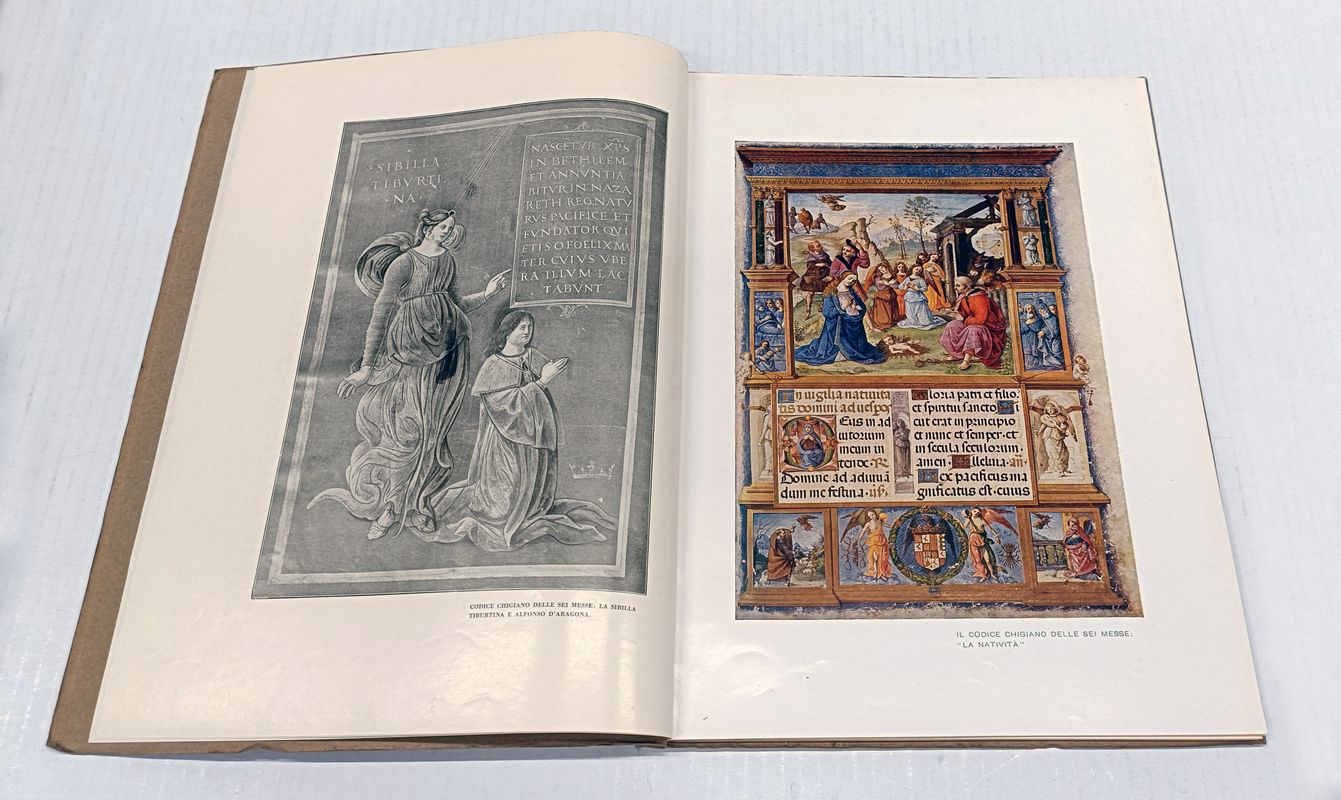 ·SIBILLA·
TIBVRTI·
·NA·
NASCETVR XPS
IN BETHLEEM·
ET ANNVNTIA
BITVR IN NAZA
RETH REGNATV
RVS PACIFICE ET
FVNDATOR QVI
ETIS O FOELIX MA
TER CVIVS VBE
RA ILLVM LAC
TABVNT·
CODICE CHIGIANO DELLE SEI MESSE: LA SIBILLA
TIBURTINA E ALFONSO D'ARAGONA.
In uigilia natiuita
tis domini ad uespo
Eus in ad
iutorium
meum in
tende· ℟
Domine ad adiuuā
dum me festina·
loria patri et filio·
et spiritui sancto Si
cut erat in principio
et nunc et semper· et
in secula seculorum·
amen· Alleluia· añ·
Rex pacificus ma
gnificatus est· cuius
IL CODICE CHIGIANO DELLE SEI MESSE:
"LA NATIVITÀ"